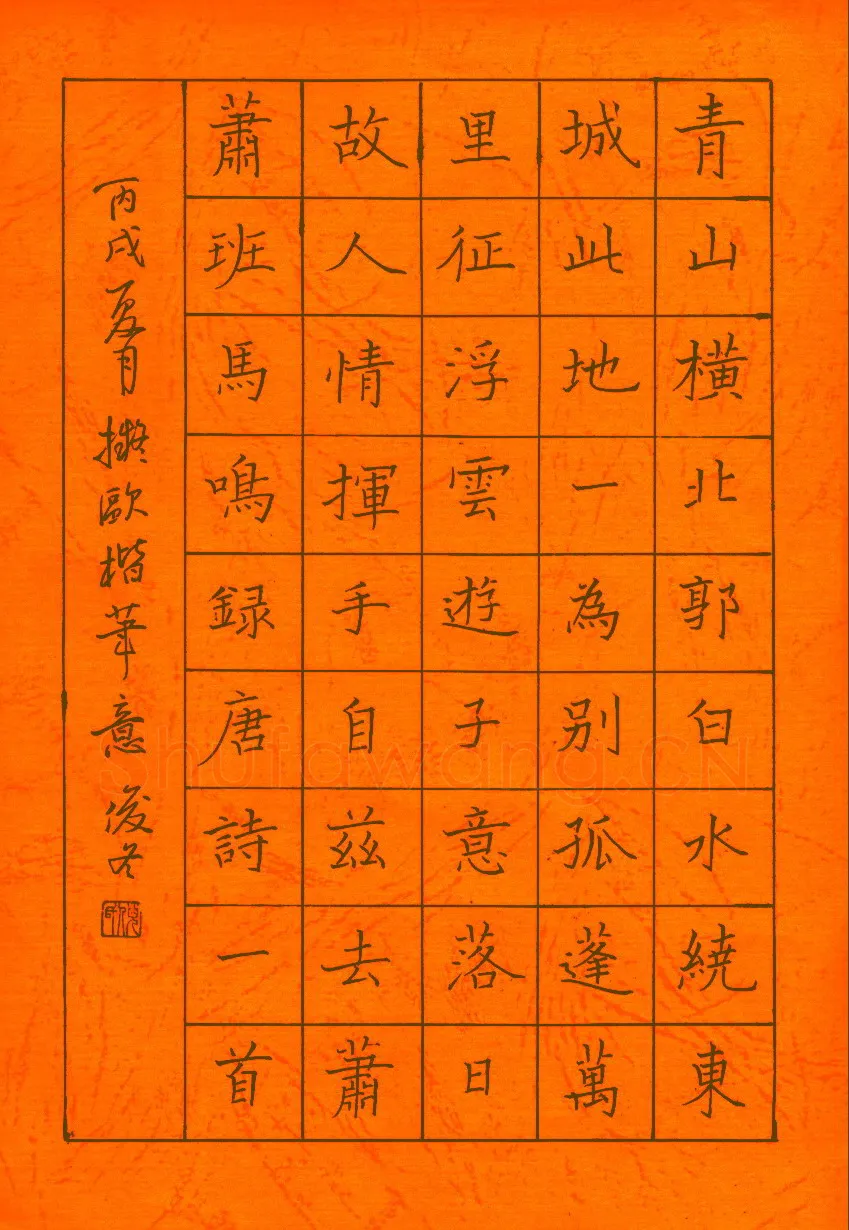 青山橫北郭白水繞東
城此地一為别孤蓬萬
里征浮雲遊子意落日
故人情揮手自茲去蕭
蕭班馬鳴録唐詩一首
丙戌夏月擬歐楷筆意俊冬
shufawang.CN